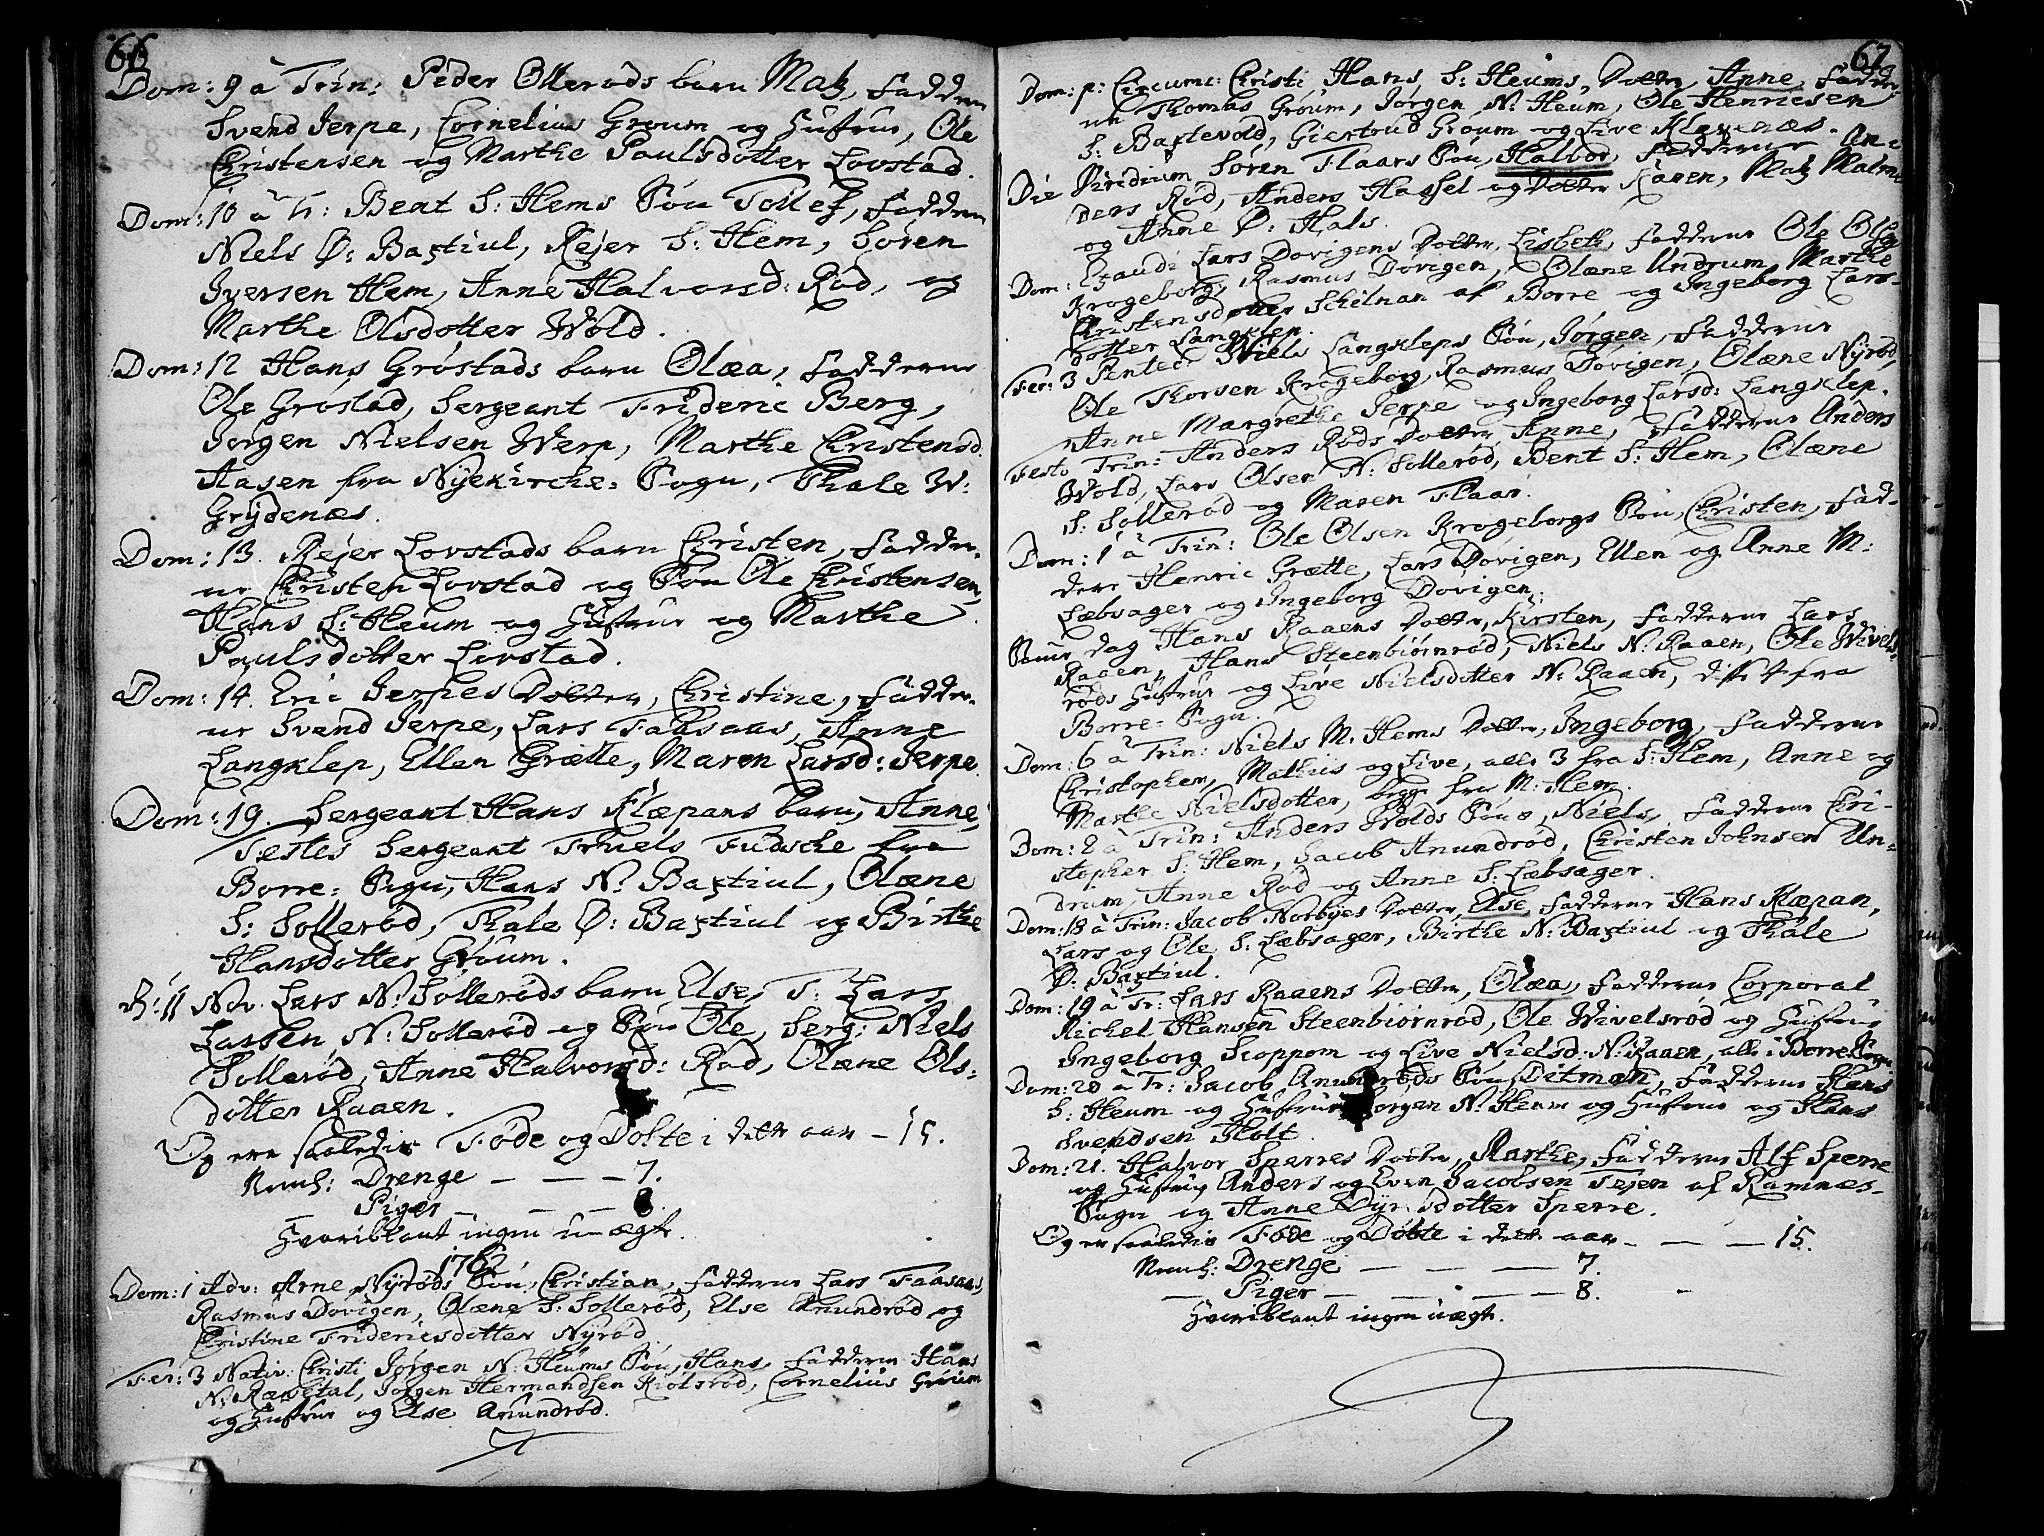 66
Dom: 9 à Trin: Peder Ollerøds barn Matz, Faddern
Svend Jerpe, Cornelius Grøum og Hustrue, Ole
Christensen og Marthe Paulsdotter Lovstad.
Dom: 10 à Tr: Bent S: Hems Søn Tollef, Faddern
Niels Ø: Bastiul, Rejer S: Hem, Søren
Iversen Hem, Anne Halvorsd: Rød, og
Marthe Olsdotter Wold.
Dom: 12 Hans Grøstads barn Olæa, Fadderne
Ole Grøstad, Sergeant Frideric Berg,
Jørgen Nielsen Werp, Marthe Christensd.
Aasen fra Nyekirche-Sogn, Thale W:
Grydenæs.
Dom: 13. Rejer Lovstads barn Christen, Fadder-
ne Christen Lovstad og Søn Ole Christensen,
Hans S: Heum og Hustrue og Marthe
Paulsdotter Lovstad.
Dom: 14. Eric Jerpes Dotter, Christine, Fadder-
ne Svend Jerpe, Lars Faasaas, Anne
Langklep, Ellen Grætte, Maren Larsd: Jerpe.
Dom: 19. Sergeant Hans Klæpans barn, Anne,
Testes Sergeant Truels Fudsche fra
Borre-Sogn, Hans N: Bastiul, Olæne
S: Sollerød, Thale Ø: Bastiul og Birthe
Hansdotter Grøum.
D: 11 Nov. Lars N: Sollerøds barn Else, T: Lars
Larsen N: Sollerød og Søn Ole, Serg: Niels
Sollerød, Anne Halvorsd: Rød, Olæne Ols-
dotter Raaen.
Og ere saaledis Føde og Døbte i dette aar – 15.
Neml: Drenge – – – 7.
Piger – – – 8.
Hvoriblant ingen u-ægte.
1762
Dom: 1 Adv: Arne Nyrøds Søn, Christian, Fadderne Lars Faasaas,
Rasmus Dovigen, Olæne S: Sollerød, Else Anundrød og
Christine Fridericsdotter Nyrød.
Fer: 3 Nativ: Christi Jørgen N: Heums Søn, Hans, Fadderne Hans
N: Ramstal, Jørgen Hermandsen Kiolsrød, Cornelius Grøum
og Hustrue og Else Anundrød.
67
Dom: p: Circumc: Christi Hans S: Heums, Dotter, Anne, Fadder-
ne Thomas Grøum, Jørgen N: Heum, Ole Henricsen
S: Bastevold, Giertrud Grøum og Live Klavenæs.
Die Viridium Søren Flaars Søn, Halvor, Fadderne An-
ders Rød, Anders Hassel og Dotter Karen, Matz Malmø
og Anne Ø: Hals.
Dom: Exaudi Lars Dovigens Dotter, Lisbeth, Fadderne Ole Olse
Krogeborg, Rasmus Dovigen, Olæne Undrum, Marthe
Christensdotter Schelnan af Borre og Ingeborg Lars-
dotter Langklep.
Fer: 3 Pentec: Niels Langkleps Søn, Jørgen, Fadderne
Ole Thorsen Krogeborg, Rasmus Dovigen, Olæne Nyrød,
Anne Margrethe Jerpe og Ingeborg Larsd: Langklep.
Festo Trin: Anders Røds Dotter, Anne, Fadderne Anders
Wold, Lars Olsen N: Sollerød, Bent S: Hem, Olæne
S: Sollerød og Maren Flaar.
Dom: 1 à Trin: Ole Olsen Krogeborgs Søn, Christen, Fad-
dere Henric Grætte, Lars Dovigen, Ellen og Anne M:
Læbsager og Ingeborg Dovigen.
Samme dag Hans Raaens Dotter, Kirsten, Fadderne Lars
Raaen, Hans Steenbiørnrød, Niels N: Raaen, Ole Wivels-
røds Hustrue og Live Nielsdotter N: Raaen, disse fra
Borre-Sogn.
Dom: 6 à Trin: Niels M: Hems Dotter, Ingeborg, Fadderne
Christopher, Mathis og Live, alle 3 fra S: Hem, Anne og
Marthe Nielsdotter, begge fra M: Hem.
Dom: 8 à Trin: Anders Wolds Søn, Niels, Fadderne Chri-
stopher S: Hem, Jacob Anundrød, Christen Johnsen Un-
drum, Anne Rød og Anne S: Læbsager.
Dom: 18 à Trin: Jacob Norbyes Dotter, Else, Fadderne Hans Klæpan,
Lars og Ole S: Læbsager, Birthe N: Bastiul og Thale
Ø: Bastiul.
Dom: 19 à Tr: Lars Raaens Dotter, Olæa, Fadderne Corporal
Michel Hansen Steenbiørnrød, Ole Wivelsrød og Hustrue
Ingeborg Scoppom og Live Nielsd: N: Raaen, alle i Borre Sogn.
Dom: 20 à Tr: Jacob Anundrøds Søn Ditman, Fadderne Hans
S: Heum og Hustrue, Jørgen N: Heum og Hustrue og Hans
Svendsen Holt.
Dom: 21. Halvor Sperres Dotter, Marthe, Fadderne Alf Sperre
og Hustrue, Anders og Even Jacobsen Tejen af Ramnæs-
Sogn og Anne Dyrisdotter Sperre.
Og er saaledis Føde og Døbte i dette aar – – – 15.
Neml: Drenge – – – 7.
– Piger – – – 8.
Hvoriblant ingen uægte.